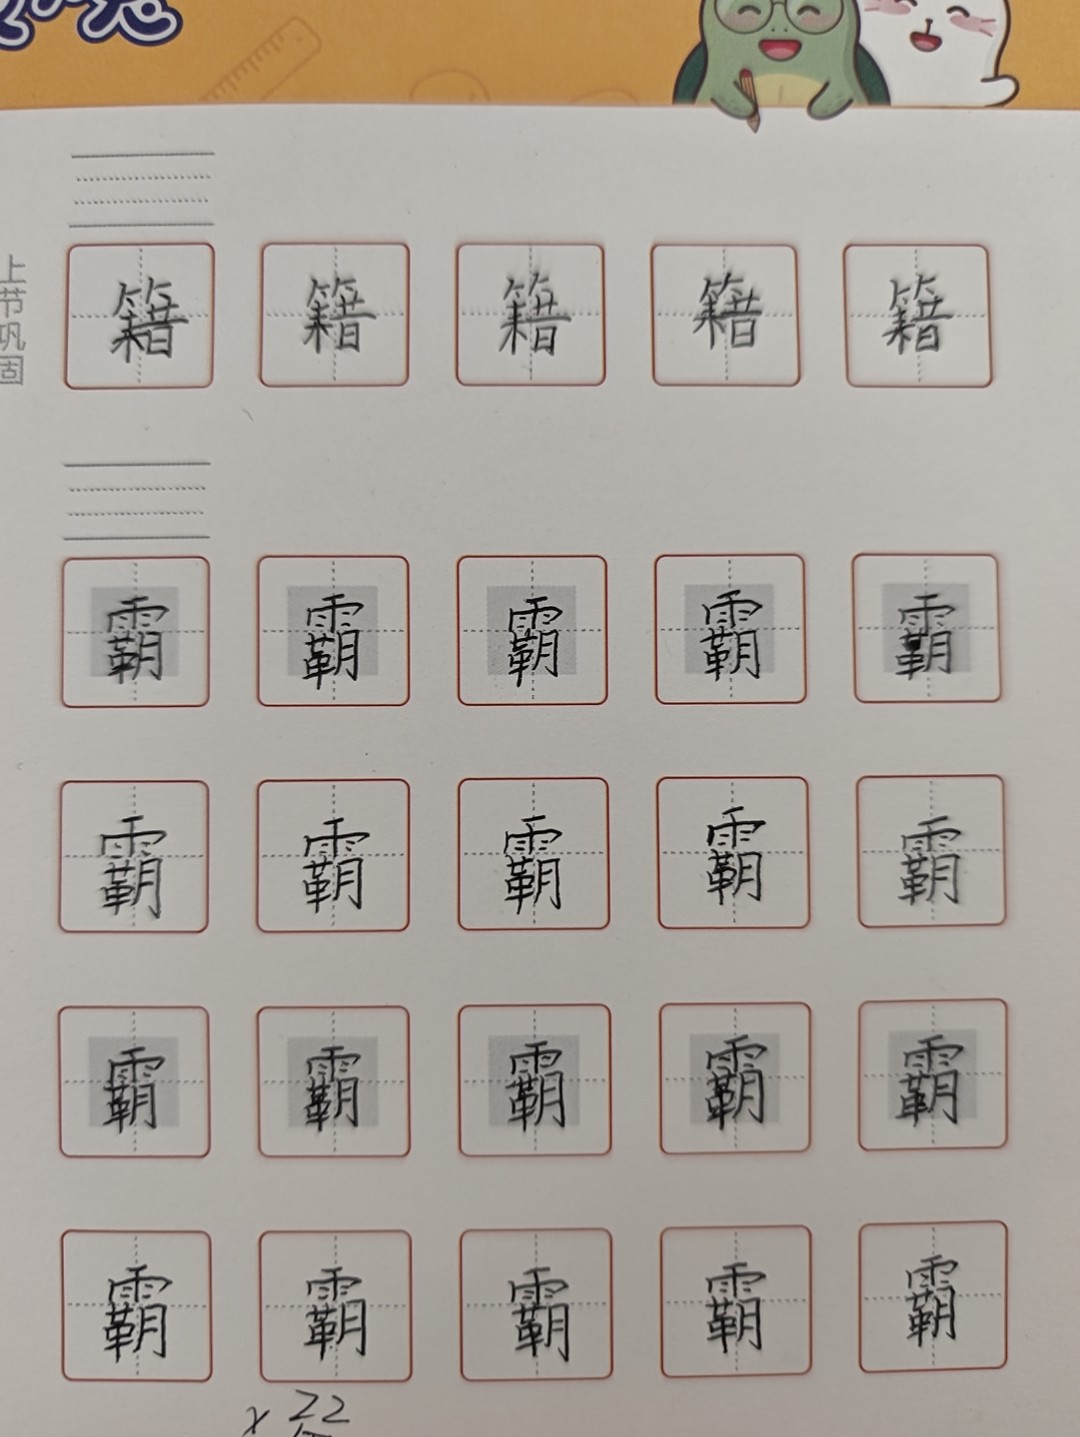 上节巩固
籍 籍 籍 籍 籍
霸 霸 霸 霸 霸
霸 霸 霸 霸 霸
霸 霸 霸 霸 霸
霸 霸 霸 霸 霸
x 22